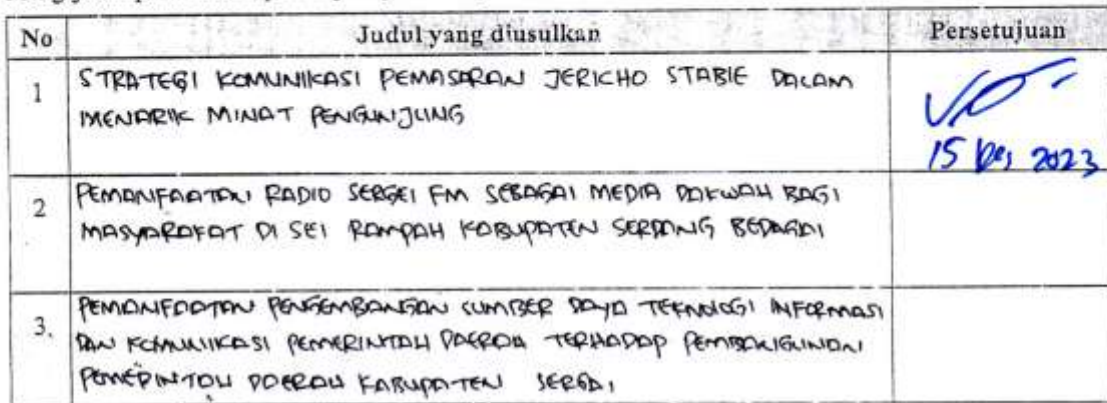 No Judul yang diusulkan Persetujuan
1 STRATEGI KOMUNIKASI PEMASARAN JERICHO STABLE DALAM
MENARIK MINAT PENGUNJUNG
15 Des 2023
2 PEMANFAATAN RADIO SERGEI FM SEBAGAI MEDIA DAKWAH BAGI
MASYARAKAT DI SEI RAMPAH KABUPATEN SERDANG BEDAGAI
3. PEMANFAATAN PENGEMBANGAN SUMBER DAYA TEKNOLOGI INFORMASI
DAN KOMUNIKASI PEMERINTAH DAERAH TERHADAP PEMBANGUNAN
PEMERINTAH DAERAH KABUPATEN SERGAI